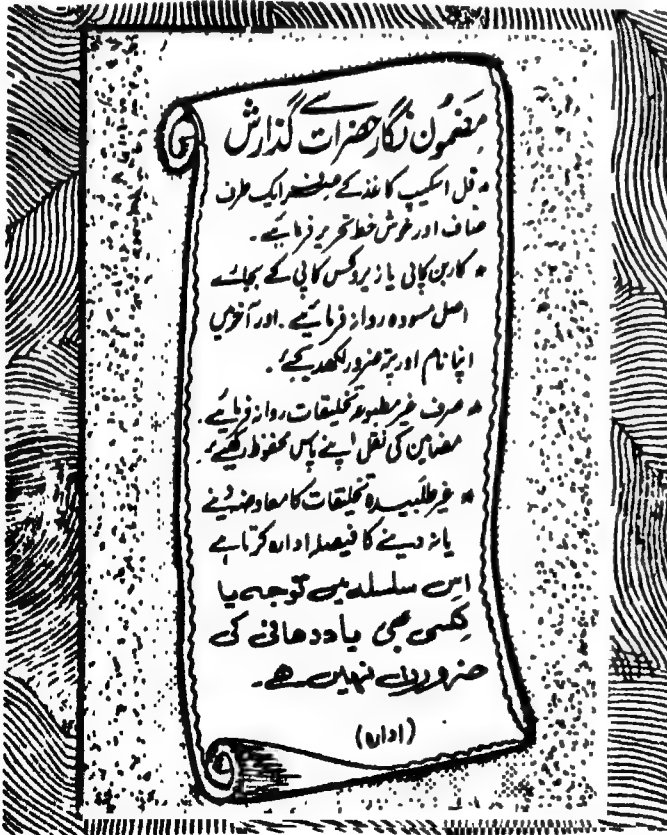 مضمون نگار حضرات سے گذارش
* فل اسکیپ کاغذ کے صرف ایک طرف
صاف اور خوش خط تحریر فرمائیے۔
* کاربن کاپی یا زیروکس کاپی کے بجائے
اصل مسودہ روانہ فرمائیے۔ اور آخر میں
اپنا نام اور پتہ ضرور لکھ دیجئے۔
* صرف غیر مطبوعہ تخلیقات روانہ فرمائیے
مضامین کی نقل اپنے پاس محفوظ رکھیئے
* غیر طلبیدہ تخلیقات کا معاوضہ دینے
یا نہ دینے کا فیصلہ ادارہ کرتا ہے
اس سلسلہ میں توجہ یا
کسی بھی یاددہانی کی
ضرورت نہیں ہے۔
(ادارہ)